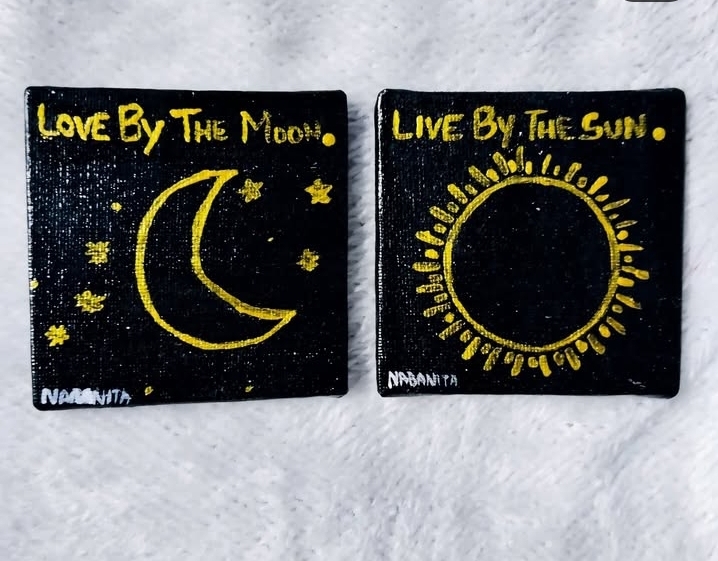 LOVE BY THE MOON.
NABANITA
LIVE BY THE SUN.
NABANITA